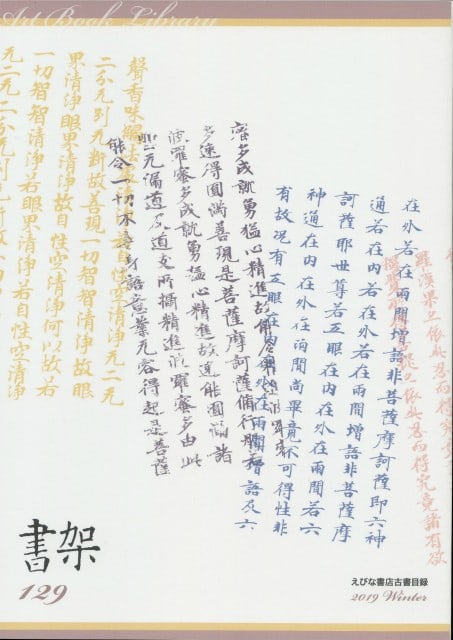 Art Book Library
在外若在兩間增語非菩薩摩訶薩即六神
通若在内若在外若在兩間增語非菩薩摩
訶薩耶世尊若五眼在内在外在兩間若六
神通在内在外在兩間尚畢竟不可得性非
有故况有五眼在内在外在兩間增語及六
蜜多成就勇猛心精進故
多速得圓滿善現是菩薩摩訶薩脩行
波羅蜜多成就勇猛心精進故速能圓滿諸
无漏道及道支所攝精進波羅蜜多由此
能令一切不善身語意業无容得起是菩薩
聲香味觸
自性空清淨无二无
二分无別无断故善現一切智智清淨故眼
界清淨眼界清淨故自性空清淨何以故若
一切智智清淨若眼界清淨若自性空清淨
无二无二分无別无
書架
129
えびな書店古書目録
2019 Winter